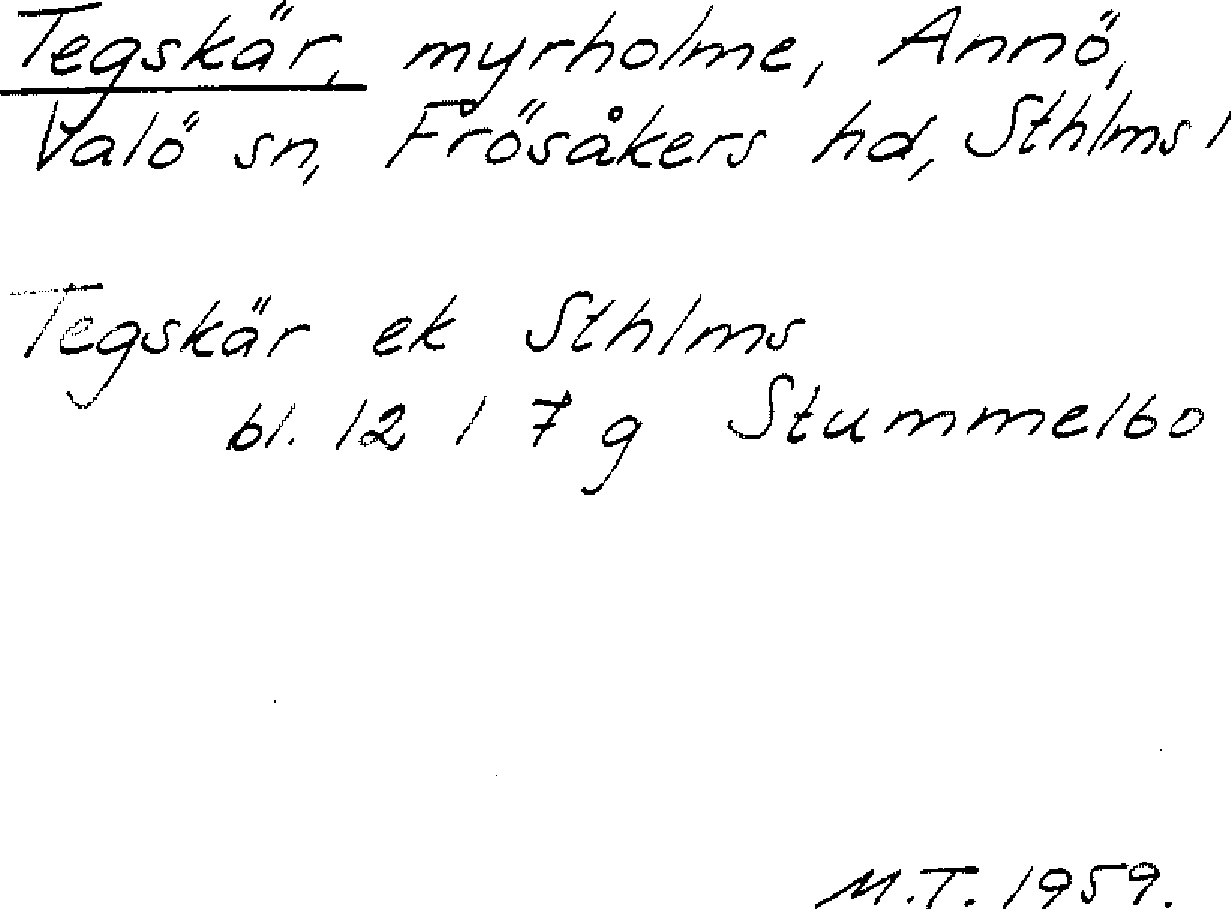 Tegskär, myrholme, Annö,
Valö sn, Frösåkers hd, Sthlms l
Tegskär ek Sthlms
bl. 12 I 7 g Stummelbo
M.T. 1959.